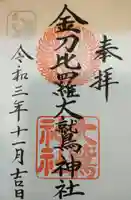 奉拝
金刀比羅大鷲神社
大鷲
神社
令和三年十一月吉日